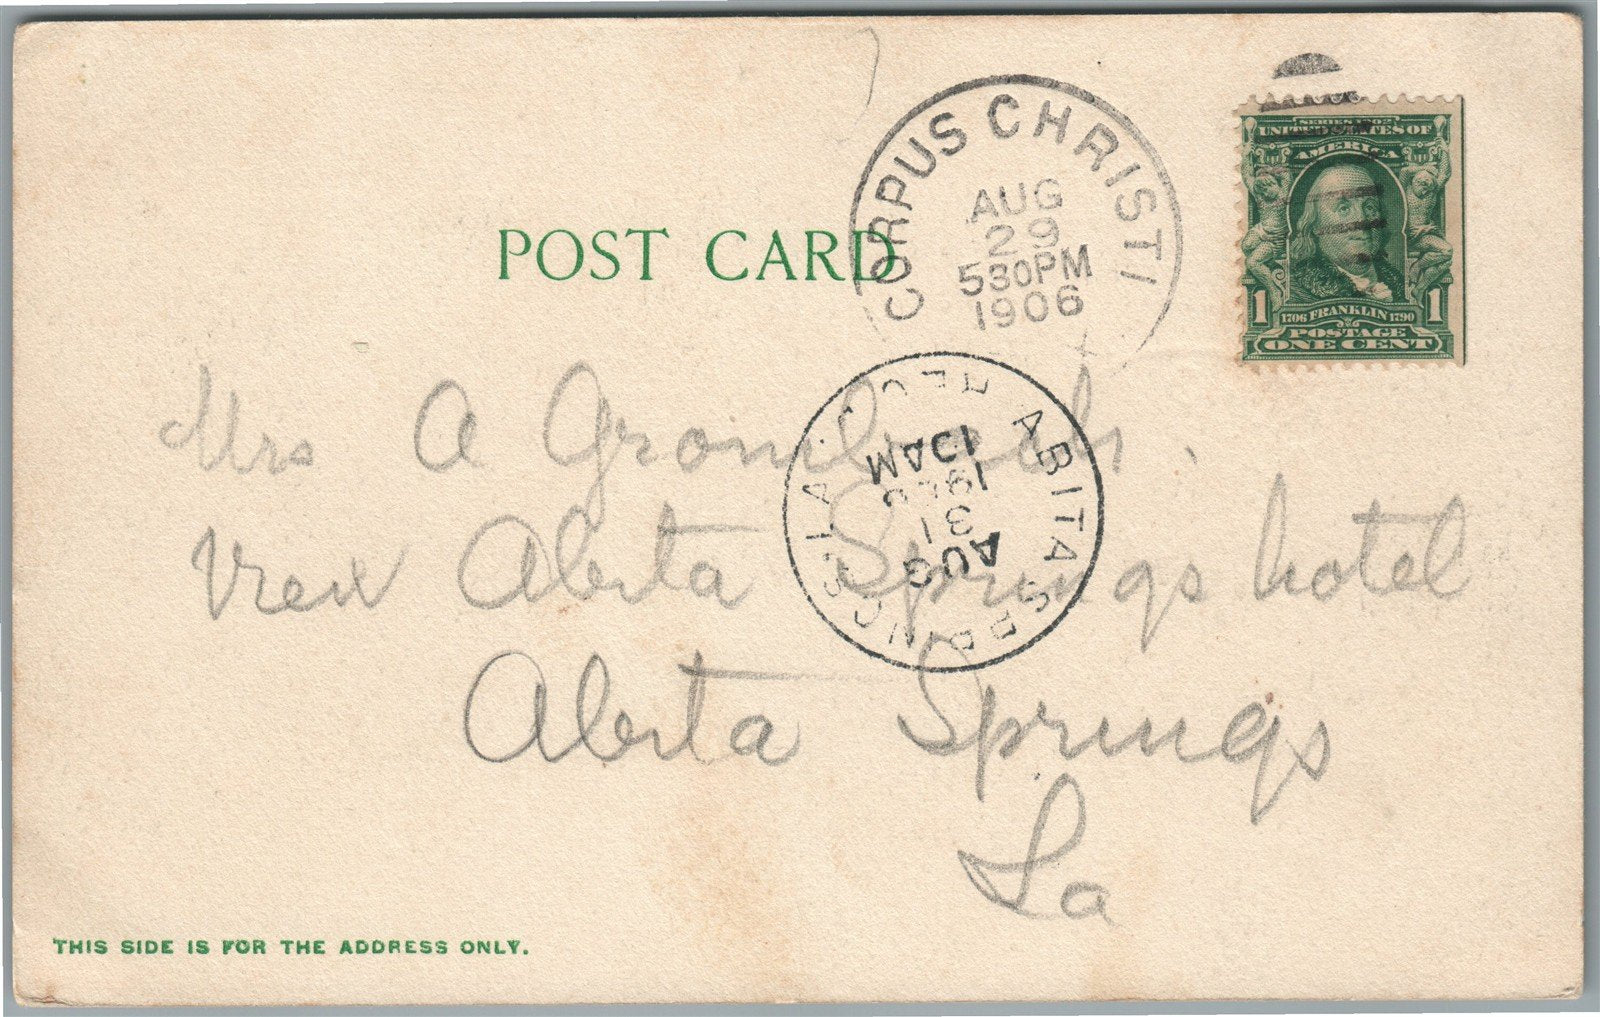 POST CARD
CORPUS CHRISTI
AUG
29
530PM
1906
SERIES 1902
UNITED STATES OF
AMERICA
1 1
1706 FRANKLIN 1790
POSTAGE
ONE CENT
ABITA SPRINGS LA. REC'D
AUG
31
10AM
Mrs A
New Abita Springs hotel
Abita Springs
La
THIS SIDE IS FOR THE ADDRESS ONLY.